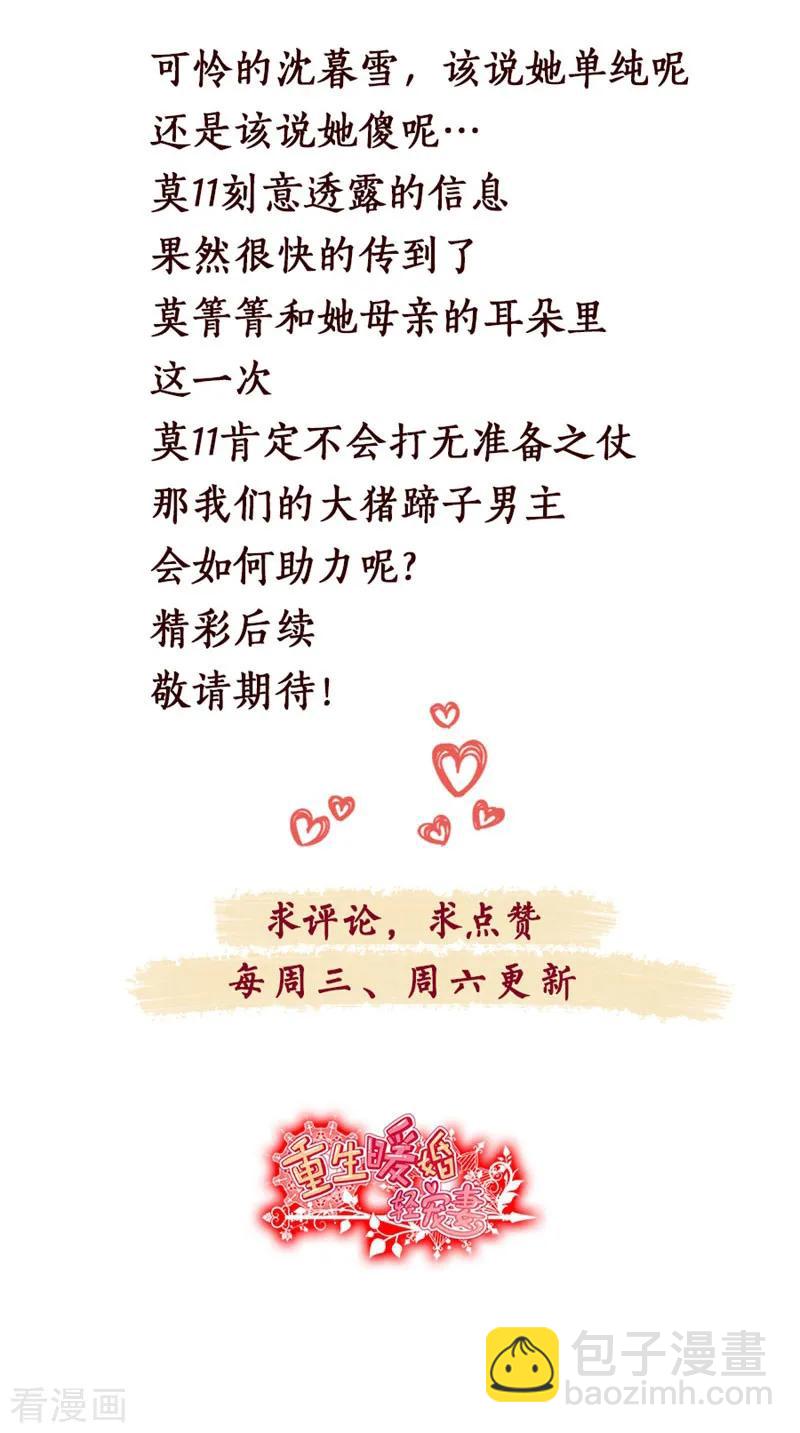 可怜的沈暮雪，该说她单纯呢
还是该说她傻呢…
莫11刻意透露的信息
果然很快的传到了
莫箐箐和她母亲的耳朵里
这一次
莫11肯定不会打无准备之仗
那我们的大猪蹄子男主
会如何助力呢？
精彩后续
敬请期待！
求评论，求点赞
每周三、周六更新
重生暖婚
轻宠妻
包子漫畫
baozimh.com
看漫画